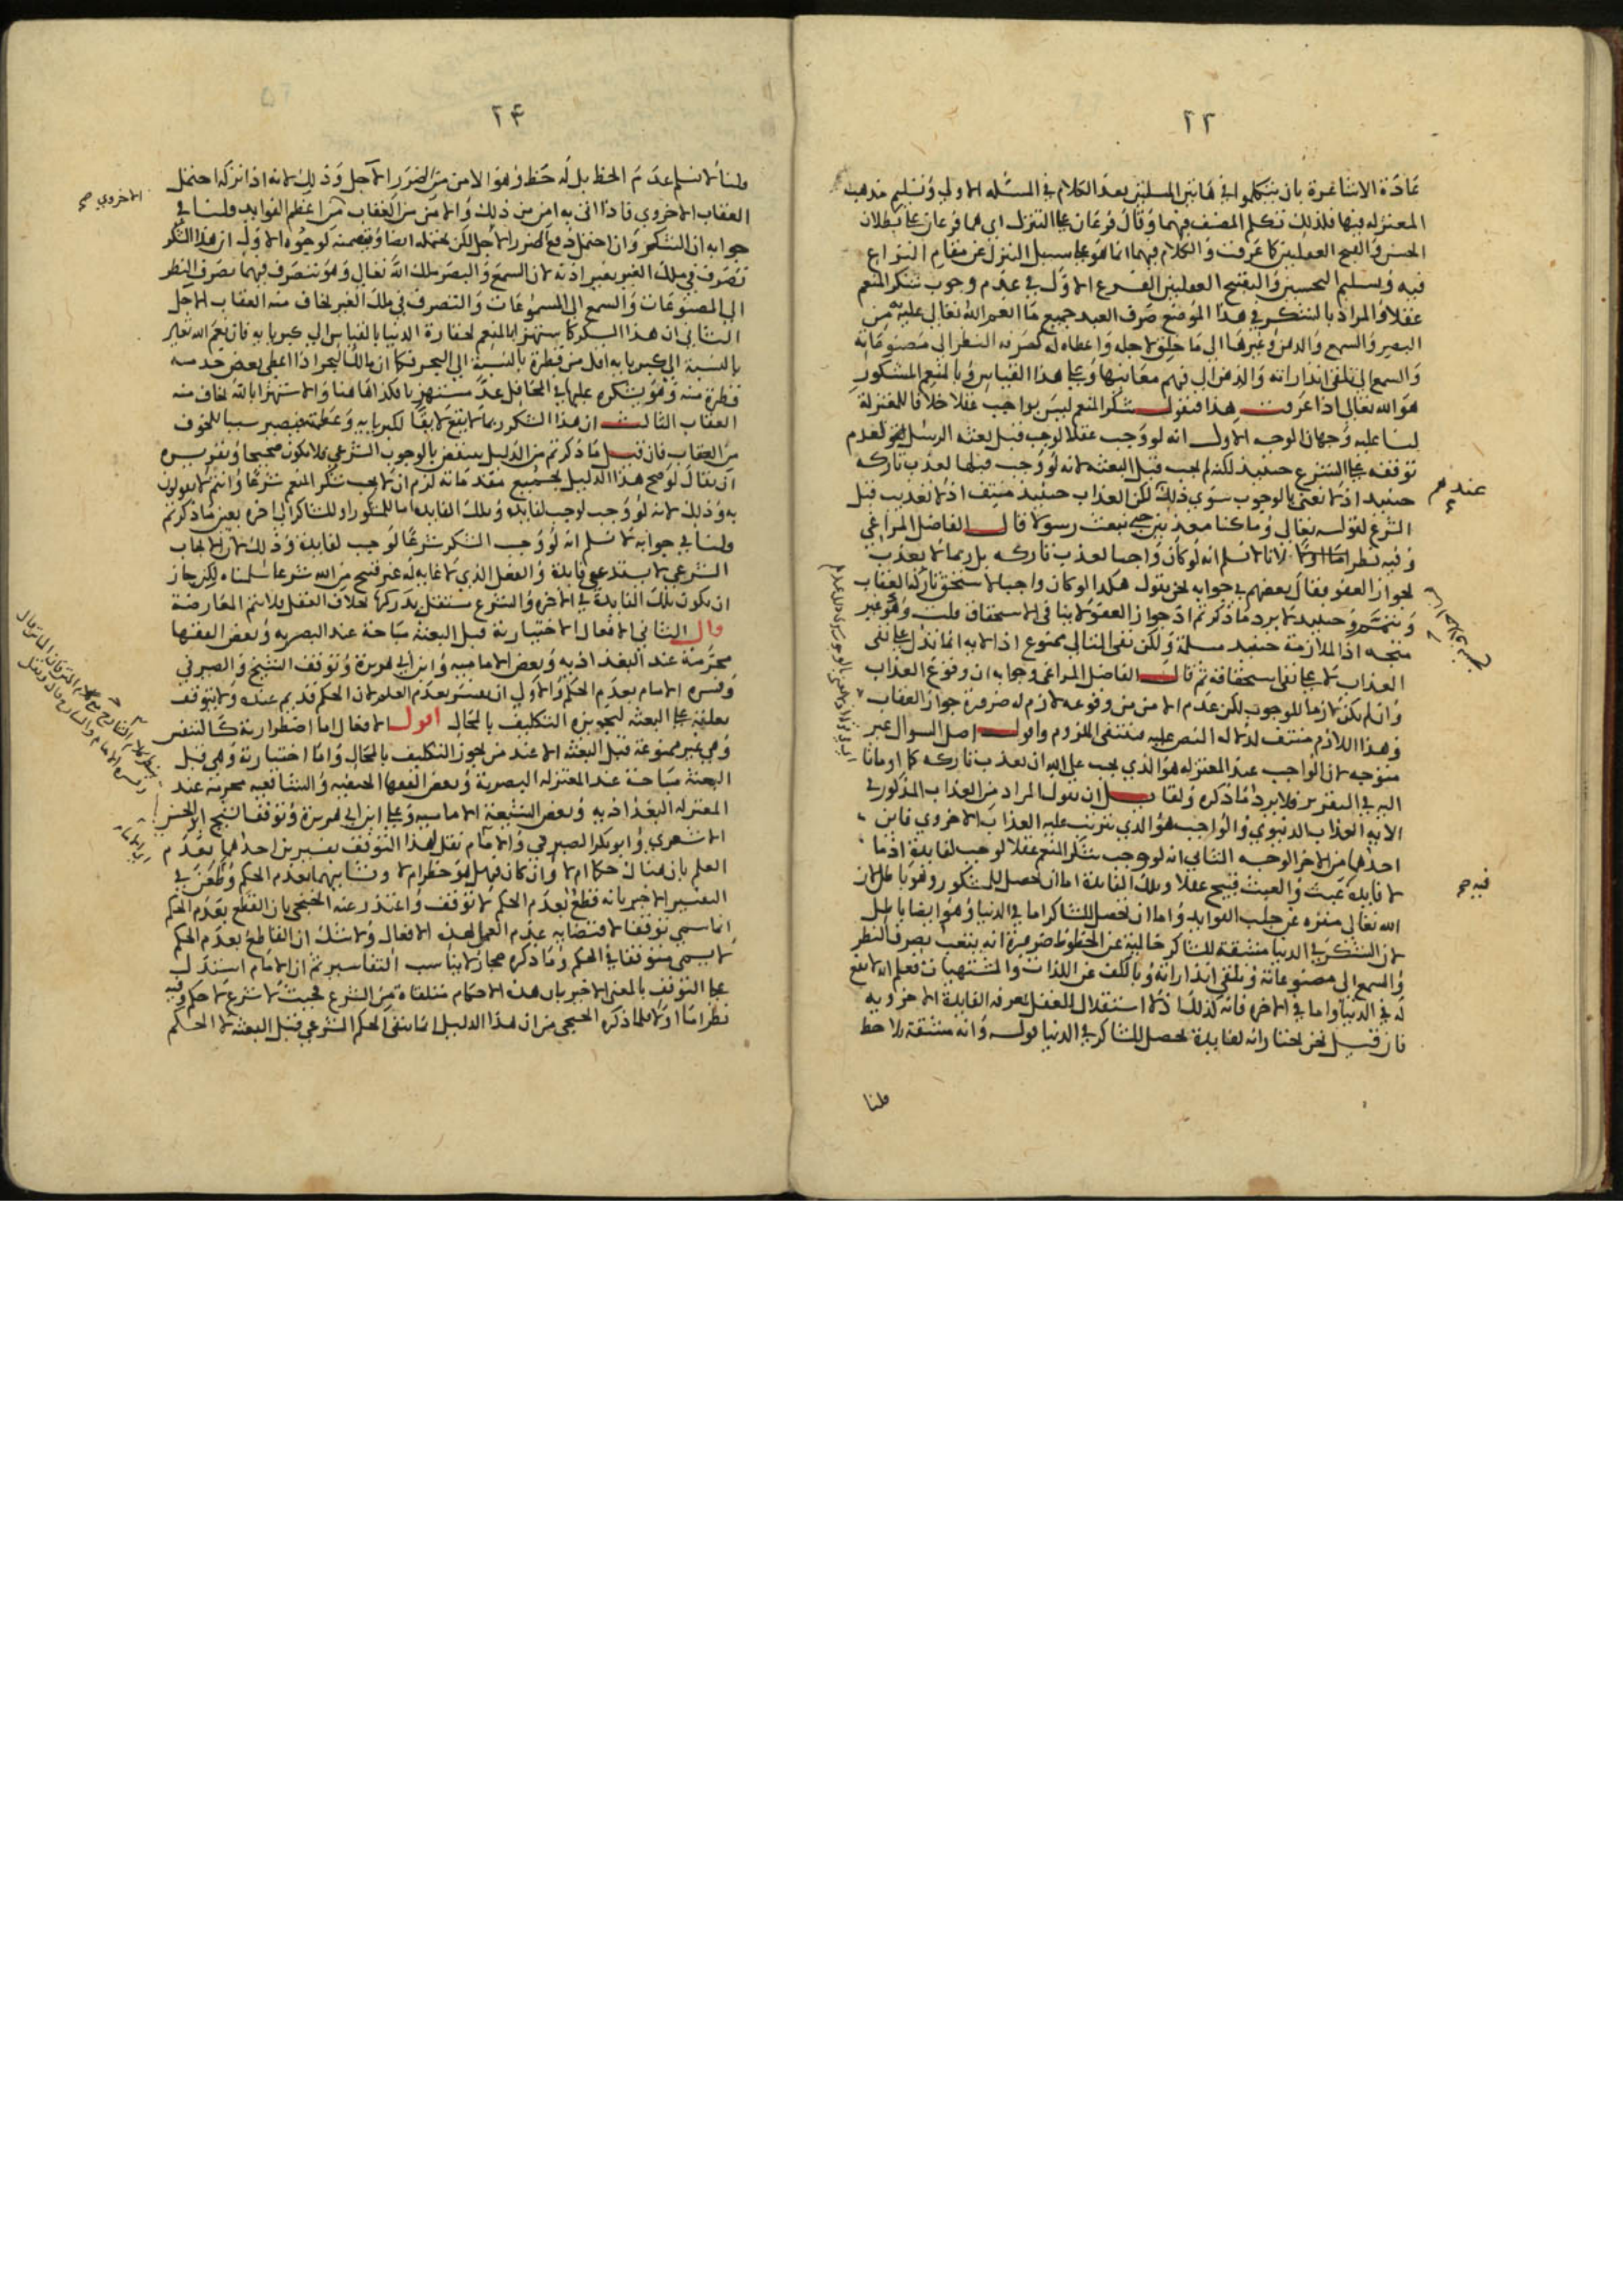 ٢٢
عادة الاشاعرة بان يتكلموا في هاتين المسلتين بعد الكلام في المسئلة الاولى وتسليم مذهب
المعتزله فيها فلذلك تكلم المصنف فيهما وقال فرعان على التنزل اى هما فرعان على بطلان
الحسن والقبح العقليين كما عرفت والكلام فيهما انما هو على سبيل التنزل عن مقام النزاع
فيه وتسليم التحسين والتقبيح العقليين الفرع الاول في عدم وجوب شكر المنعم
عقلا والمراد بالشكر في هذا الموضع صرف العبد جميع ما انعم الله تعالى عليه من
البصر والسمع والذهن وغيرها الى ما خلق لاجله واعطاه له كصرفه النظر الى مصنوعاته
والسمع الى تلقى انذاراته والذهن الى فهم معانيها وعلى هذا القياس وبالمنعم المشكور
هو الله تعالى اذا عرفت هذا فنقول شكر المنعم ليس بواجب عقلا خلافا للمعتزلة
لنا عليه وجهان الوجه الاول انه لو وجب عقلا لوجب قبل بعثه الرسل لعدم
توقفه على الشرع حينيذ لكنه لم يجب قبل البعثه لانه لو وجب قبلها لعذب تاركه
حينيد اذ لا نعنى بالوجوب سوى ذلك لكن العذاب حينيذ منتف اذ لا تعذيب قبل
الشرع لقوله تعالى وما كنا معذبين حتى نبعث رسولا قال الفاضل المراغي
وفيه نظر اما اولا فلانا لا نسلم انه لو كان واجبا لعذب تاركه بل ربما لا يعذب
لجواز العفو فقال بعضهم في جوابه نحن نقول هكذا لو كان واجبا لاستحق تاركه العقاب
حينيد لا يرد ما ذكرتم اذ جواز العفو لا ينافى الاستحقاق قلت وهو غير
متجه اذ الملازمة حينيد مسلمة ولكن نفى التالى ممنوع اذ الايه انما تدل على نفى
العذاب لا على نفى استحقاقه ثم قال الفاضل المراغى وجوابه ان وقوع العذاب
وان لم يكن لازما للوجوب لكن عدم الامن من وقوعه لازم له ضرورة جواز العقاب
وهذا اللازم منتف لدلاله النص عليه فينتفى الملزوم واقول اصل السوال غير
متوجه لان الواجب عند المعتزله هو الذي يجب على الله ان يعذب تاركه كما اومانا
اليه في التقرير فلا يرد ما ذكره ولقايل ان يقول المراد من العذاب المذكور في
الايه العذاب الدنيوي والواجب هو الذي يترتب عليه العذاب الاخروي فاين
احدهما من الاخر الوجه الثاني انه لو وجب شكر المنعم عقلا لوجب لفايدة اذ ما
لا فايدة عبث والعبث قبيح عقلا وتلك الفايدة اما ان تحصل للمشكور وهو باطل لان
الله تعالى منزه عن جلب الفوايد واما ان تحصل للشاكر اما في الدنيا وهو ايضا باطل
لان الشكر في الدنيا مشقة للشاكر خالية عن الحظوظ ضرورة انه يتعب بصرف النظر
والسمع الى مصنوعاته وتلقى انذاراته وبالكف عن اللذات والمشتهيات فعلم انه لا نفع
له في الدنيا واما في الاخره فانه كذلك اذ لا استقلال للعقل بمعرفه الفايدة الاخرويه
فان قيل نحن نختار انه لفايدة تحصل للشاكر في الدنيا قوله وانه مشقة بلا حظ
قلنا
عندهم
فيه صح
٢٤
قلنا لا نسلم عدم الحظ بل له حظ وهو الامن من الضرر الآجل وذلك لانه اذا تركه احتمل
العقاب الاخروي فاذا اتى به امن من ذلك والامن من العقاب من اعظم الفوايد قلنا في
جوابه ان الشكر وان احتمل دفع الضرر الآجل لكن يحتمله ايضا وتضمنه لوجوه الاول ان هذا الشكر
تصرف في ملك الغير بغير اذنه لان السمع والبصر ملك الله تعالى وهو يتصرف فيهما بصرف النظر
الى المصنوعات والسمع الى المسموعات والتصرف في ملك الغير يخاف منه العقاب الآجل
الثاني ان هذا الشكر كاستهزا بالمنعم لحقارة الدنيا بالقياس الى كبريايه فان نعم الله تعالى
بالنسبة الى كبريايه اقل من قطرة بالنسبة الى البحر فكما ان مالك البحر اذا اعطى بعض خدمه
قطرة منه وهو يشكره عليها في المحافل عد مستهزيا فكذا هاهنا والاستهزا بالله يخاف منه
العقاب الثالث ان هذا الشكر ربما لا يقع لايقا لكبريايه وعظمته فيصير سببا للخوف
من العقاب فان قيل ما ذكرتم من الدليل ينتقض بالوجوب الشرعي فلا يكون صحيحا وتقريره
ان يقال لو صح هذا الدليل بجميع مقدماته لزم ان لا يجب شكر المنعم شرعا وانتم لا تقولون
به وذلك لانه لو وجب لوجب لفايدة وتلك الفايدة اما للمشكور او للشاكر الى اخره بعين ما ذكرتم
قلنا في جوابه لا نسلم انه لو وجب الشكر شرعا لوجب لفايدة وذلك لان الايجاب
الشرعي لا يستدعي فايدة والفعل الذي لا غايه له غير قبيح من الله شرعا سلمناه لكن جاز
ان يكون تلك الفايدة في الاخره والشرع مستقل بدركها بخلاف العقل فلا يتم المعارضة
قال الثاني الافعال الاختيارية قبل البعثه مباحة عند البصريه وبعض الفقها
محرمة عند البغداذيه وبعض الاماميه وابن ابي هريرة وتوقف الشيخ والصيرفي
وفسره الامام بعدم الحكم والاولى ان يفسر بعدم العلم لان الحكم قديم عنده ولا يتوقف
تعلقه على البعثه لتجويزه التكليف بالمحال اقول الافعال اما اضطرارية كالتنفس
وهي غير ممنوعة قبل البعثه الا عند من يجوز التكليف بالمحال واما اختيارية وهي قبل
البعثة مباحة عند المعتزله البصرية وبعض الفقها الحنفيه والشافعيه محرمة عند
المعتزله البغداذيه وبعض الشيعة الاماميه وعلى ابن ابي هريرة وتوقف الشيخ ابو الحسن
الاشعري وابو بكر الصيرفي والامام نقل لهذا التوقف تفسيرين احدهما بعدم
العلم بان هناك حكما ام لا وان كان فهل هو حظر ام لا وثانيهما بعدم الحكم وطعن في
التفسير الاخير بانه قطع بعدم الحكم لا توقف واعتذر عنه الخنجي بان القطع بعدم الحكم
انما سمى توقفا لاقتضايه عدم العمل بهذه الافعال ولا شك ان القاطع بعدم الحكم
لا يسمى متوقفا في الحكم وما ذكره مجاز لا يناسب التفاسير ثم ان الامام استدل
على التوقف بالمعنى الاخير بان هذه الاحكام متلقاة من الشرع فحيث لا شرع لا حكم وفيه
نظر اما اولا فلما ذكره الخنجي من ان هذا الدليل انما ينفى الحكم الشرعي قبل البعثه لا الحكم
الاخروي صح